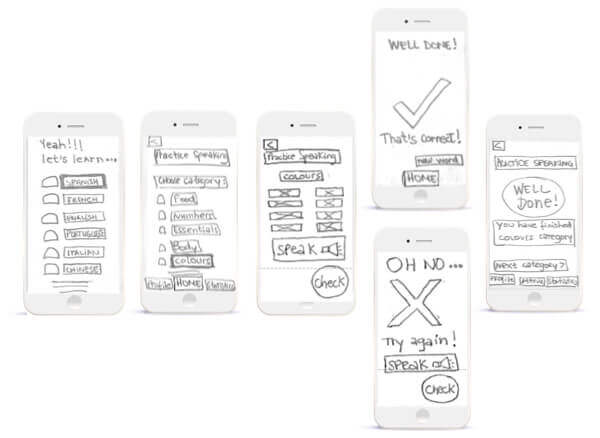 Yeah!!!
let's learn...
SPANISH
FRENCH
ENGLISH
PORTUGUESE
ITALIAN
CHINESE
<
Practice Speaking
Choose category?
Food
Numbers
Essentials
Body
colours
Profile HOME Statistics
<
Practice Speaking
COLOURS
SPEAK
Check
WELL DONE!
That's correct!
new word
HOME
OH NO...
X
Try again!
SPEAK
Check
<
PRACTICE SPEAKING
WELL
DONE!
You have finished
colours category
Next category?
Profile Statistics